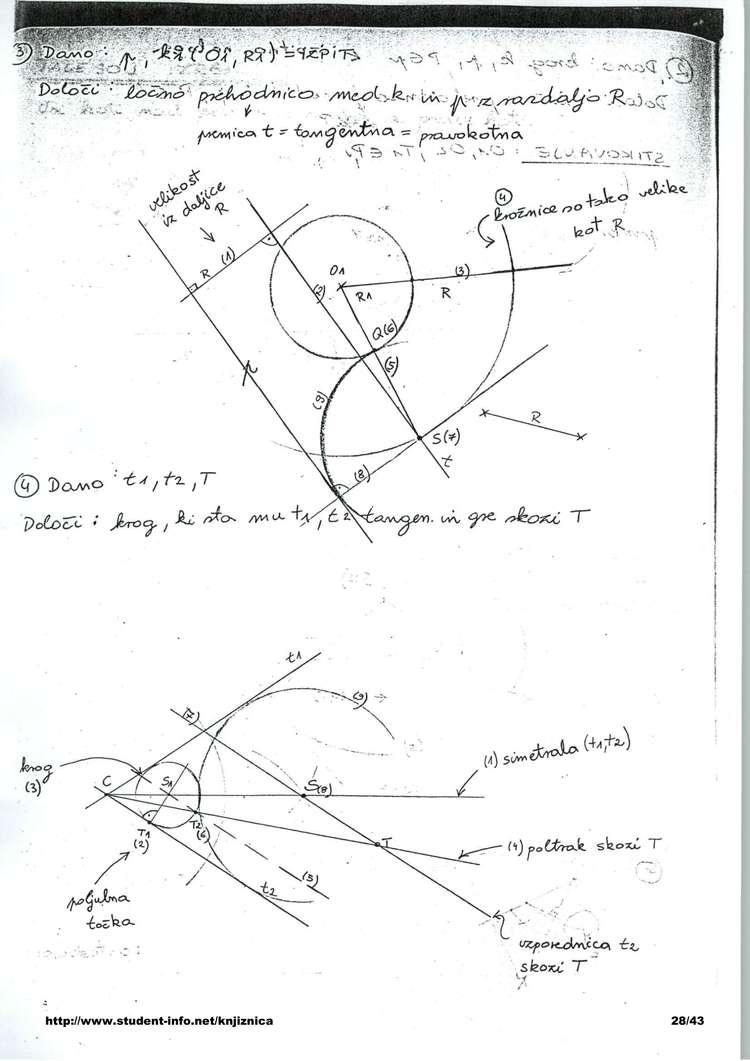 3) Dano:
Določi: ločno prehodnico med k in p z razdaljo R
premica t = tangentna = pravokotna
velikost
iz daljice
R
(4)
krožnice so tako velike
kot R
R (1)
O1
(2)
R1
(3)
R
Q(6)
(5)
p
(9)
S(7)
R
t
(8)
4) Dano: t1, t2, T
Določi: krog, ki sta mu t1, t2 tangen. in gre skozi T
t1
(7)
(9)
(1) simetrala (t1, t2)
krog
(3)
C
S1
S(8)
T1
(2)
T2
(6)
T
(4) poltrak skozi T
(5)
t2
poljubna
točka
vzporednica t2
skozi T
http://www.student-info.net/knjiznica
28/43